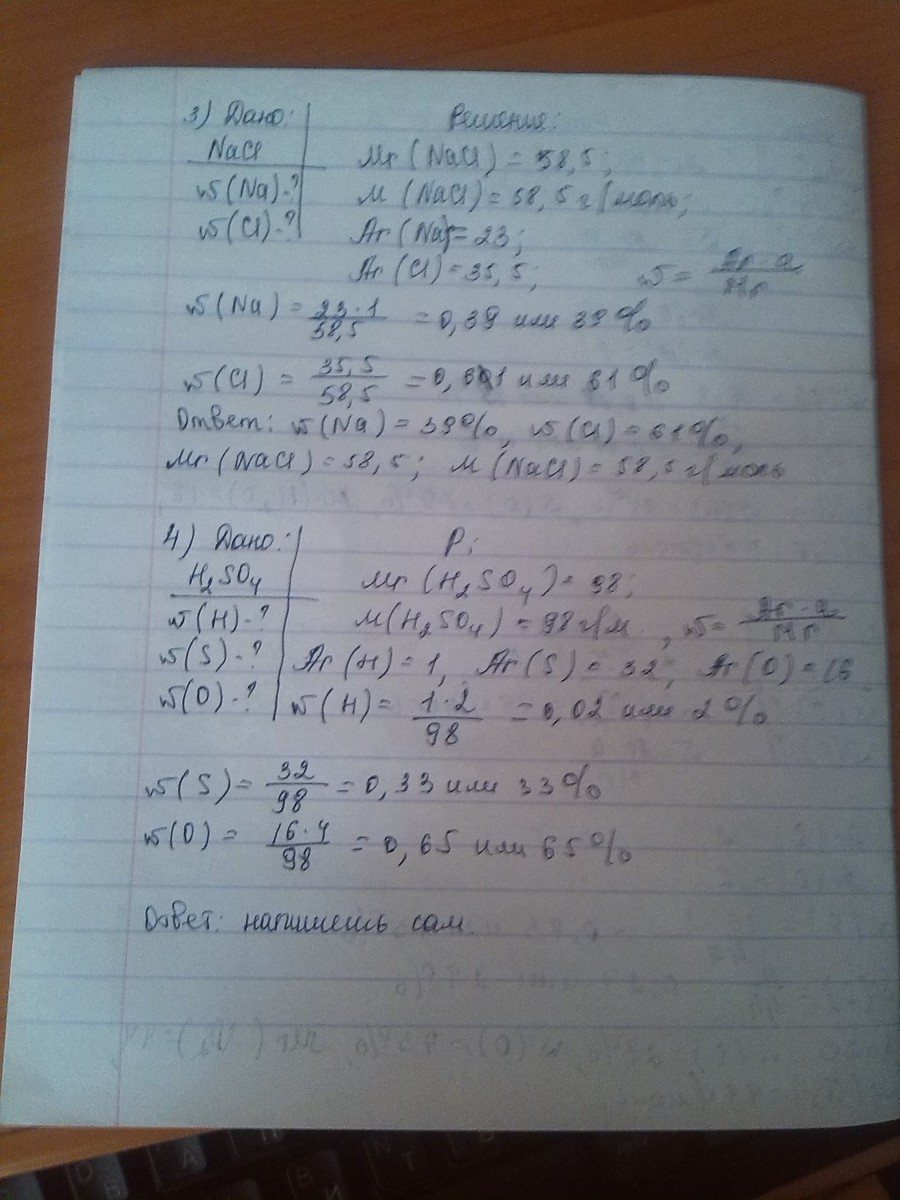 3) Дано: Решение:
NaCl Mr (NaCl) = 58,5;
w(Na)-? M (NaCl) = 58,5 г/моль;
w(Cl)-? Ar (Na) = 23;
Ar (Cl) = 35,5; w = Ar · a / Mr
w(Na) = 23 · 1 / 58,5 = 0,39 или 39%
w(Cl) = 35,5 / 58,5 = 0,61 или 61%
Ответ: w(Na) = 39%, w(Cl) = 61%,
Mr (NaCl) = 58,5; M (NaCl) = 58,5 г/моль
4) Дано: Р:
H₂SO₄ Mr (H₂SO₄) = 98;
w(H)-? M(H₂SO₄) = 98 г/м, w = Ar · a / Mr
w(S)-? Ar (H) = 1, Ar(S) = 32, Ar(O) = 16
w(O)-? w(H) = 1 · 2 / 98 = 0,02 или 2%
w(S) = 32 / 98 = 0,33 или 33%
w(O) = 16 · 4 / 98 = 0,65 или 65%
Ответ: напишешь сам.